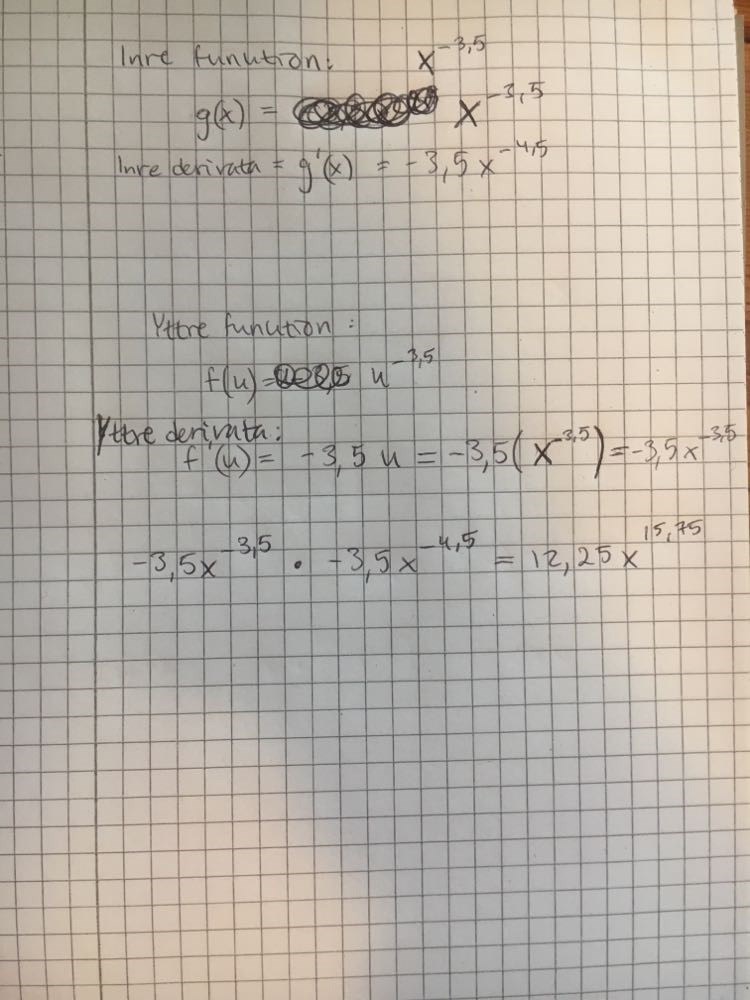 Inre funution: x^-3,5
g(x) = x^-3,5
Inre derivata = g'(x) = -3,5x^-4,5
Yttre funution:
f(u) = u^-3,5
Yttre derivata:
f'(u) = -3,5 u = -3,5(x^-3,5) = -3,5x^-3,5
-3,5x^-3,5 · -3,5x^-4,5 = 12,25x^15,75